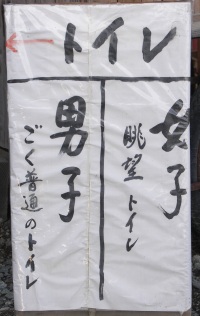 トイレ
女子
眺望トイレ
男子
ごく普通のトイレ